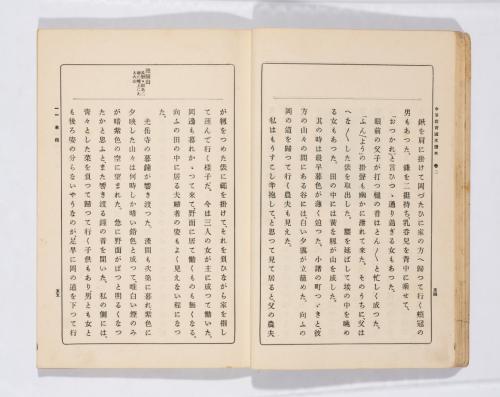 鍬を肩に掛けて岡づたひに家の方へ歸つて行く頬冠の
男もあつた。鎌を二挺持ち、乳呑兒を背中に乘せて、
「おつかれ」と言ひつゝ通り過ぎる女もあつた。
眼前の父子が打つ槌の音はとん〳〵と忙しく成つた。
「ふん」「よう」の掛聲も幽かに泄れて來た。そのうちに、父は
へな〳〵した俵を取出した。腰を延ばして塵の中を眺め
る女もあつた。田の中には黄な籾の山を成した。
其の時は最早暮色が薄く迫つた。小諸の町つゞきと、彼
方の山々の間にある谷には、白い夕靄が立籠めた。向ふの
岡の道を歸つて行く農夫も見えた。
私はもうすこし辛抱して、と思つて見て居ると、父の農夫
五四
が籾をつめた俵に繩を掛けて、それを負ひながら家を指し
て運んで行く樣子だ。今は三人の女が主に成つて働いた。
岡邊も暮れかゝつて來て、野面に居て働くものも無くなる。
向ふの田の中に居る夫婦者の姿もよく見えない程になつ
た。
光岳寺の暮鐘が響き渡つた。淺間も次第に暮れ、紫色に
夕映した山々は何時しか暗い鉛色と成つて、唯白い煙のみ
が暗紫色の空に望まれた。急に野面がぱつと明るくなつ
たかと思ふと、また響き渡る鐘の音を聞いた。私の側には、
青々とした菜を負つて歸つて行く子供もあり、男とも女と
も後ろ姿の分らないやうなのが、足早に岡の道を下つて行
五五